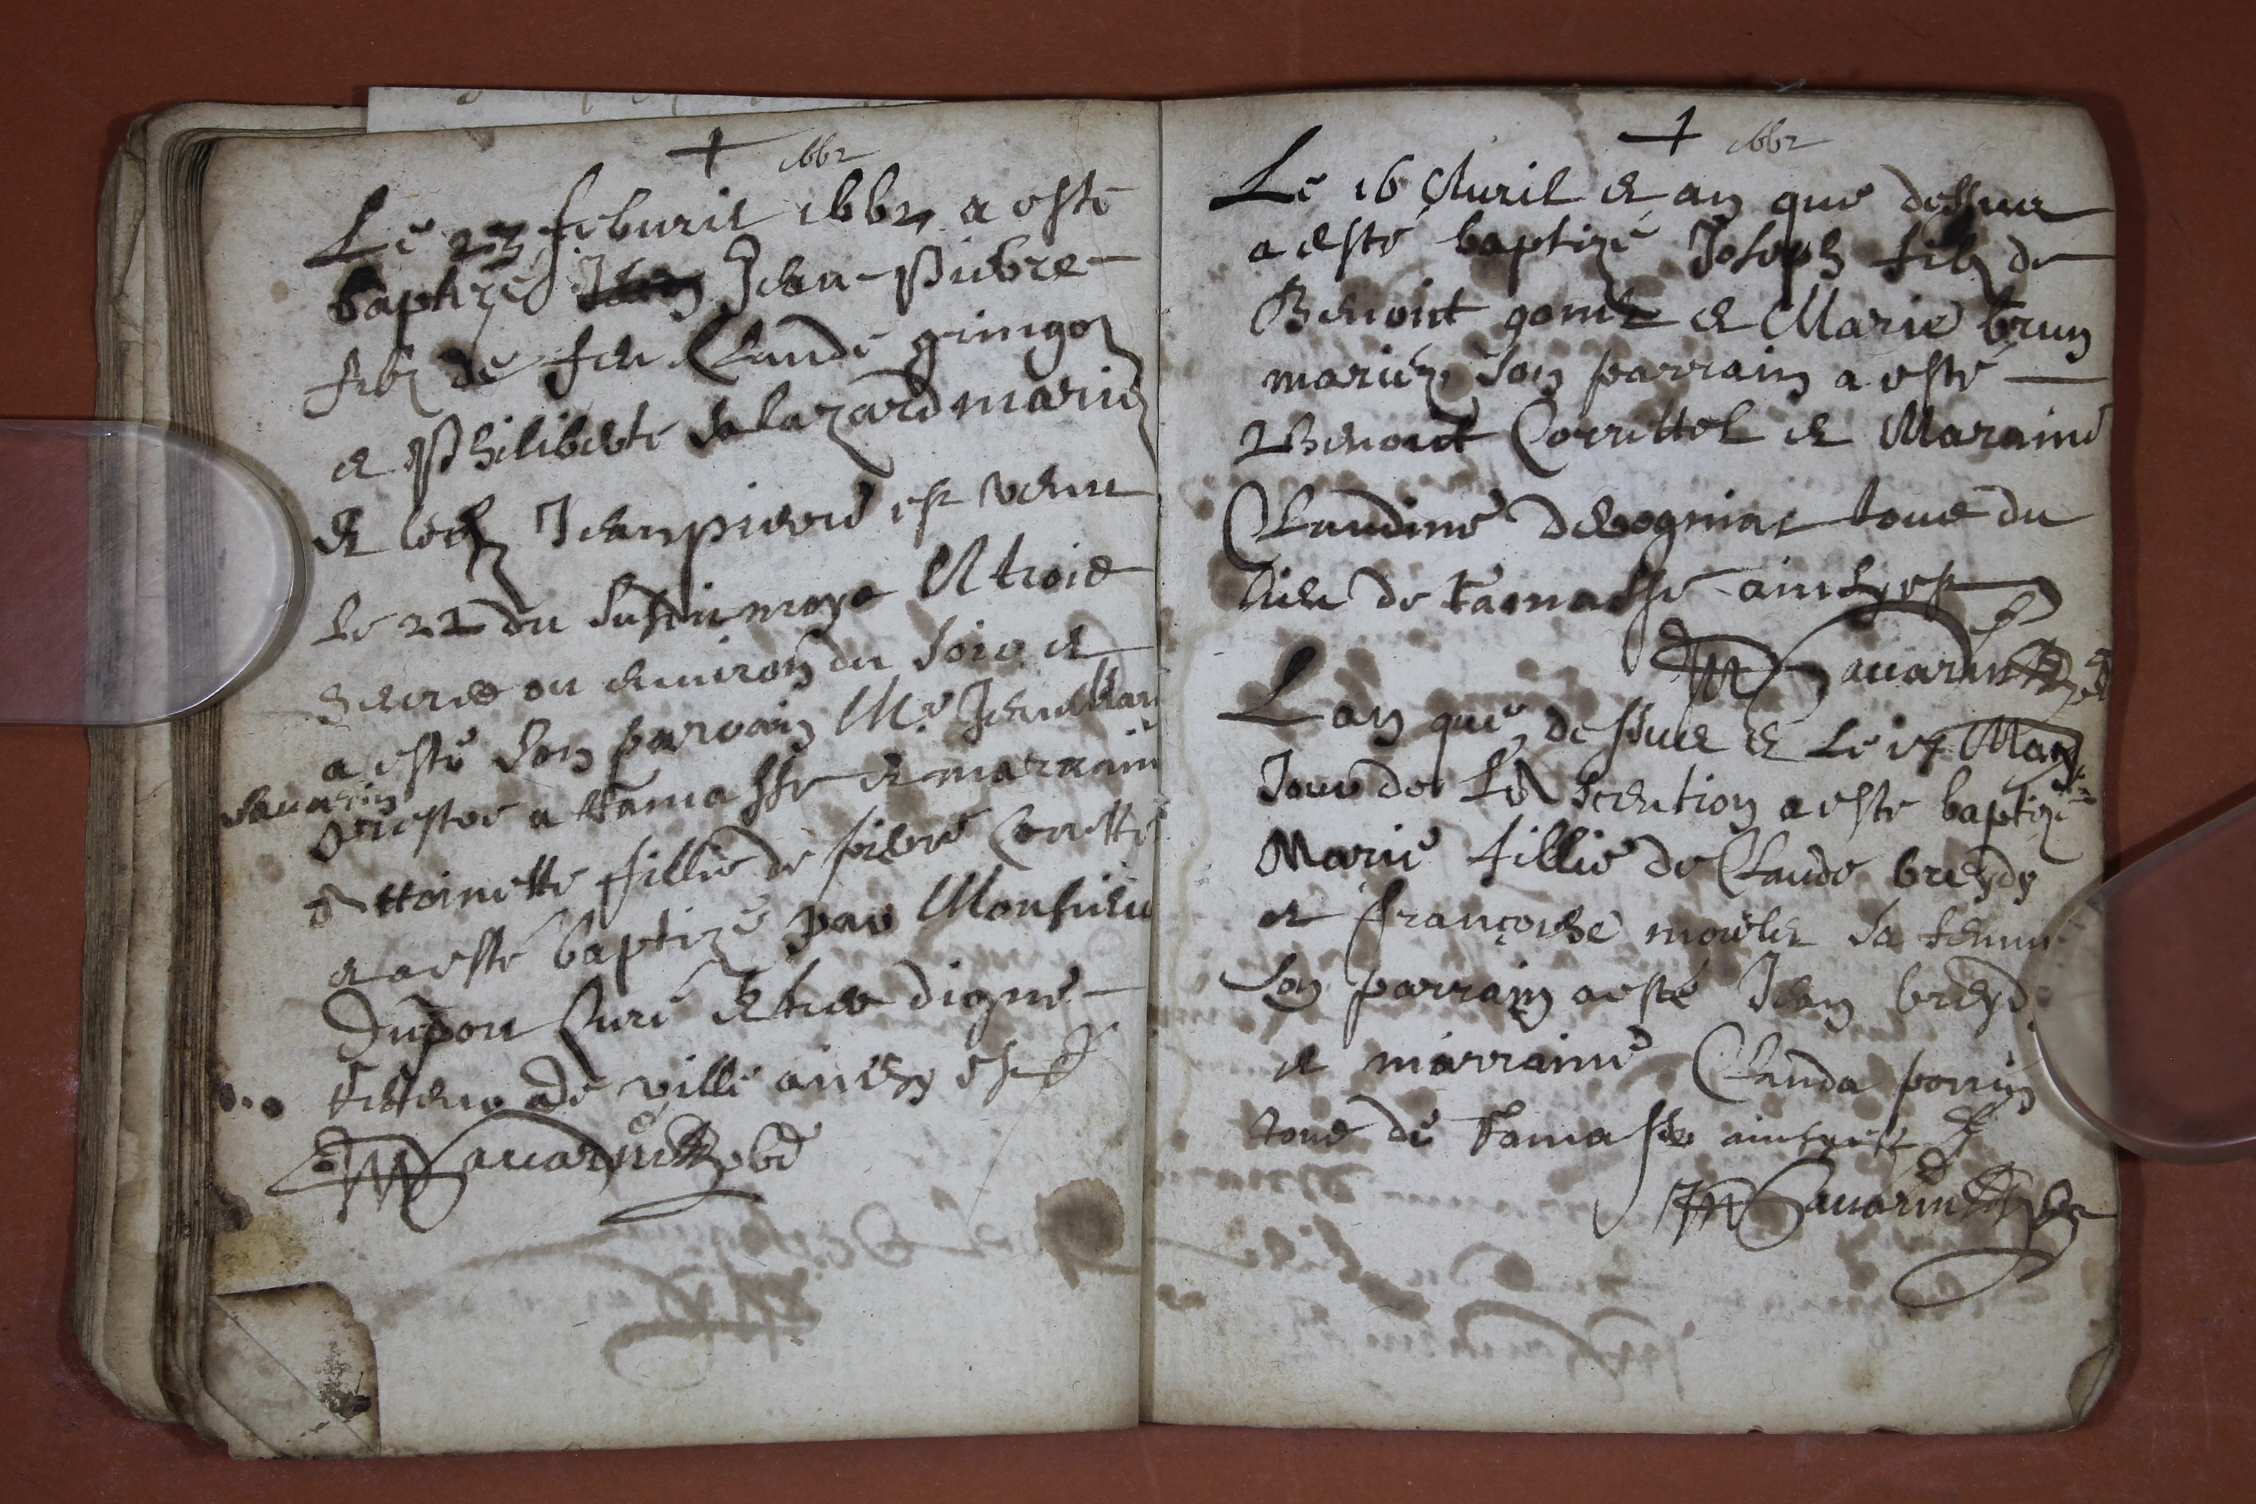 1662
Le 23 feburie 1662 a esté
baptizé Jean Jean-Pierre
filz de feu Claude gringoz
et Philiberte Salazard mariez
et led. Jean pierre est venu
le 22 du susdit moys A trois
heures ou environ du soir et
a esté son parrain Me. Jean Mar
Savarin
Prestre a tramasse et marraine
Antoinette fillie de pierre Corrette
et a esté baptizé par Monsieur
Dupon Curé et tres digne
de ville ainsy est
JM Savarin
1662
Le 16 Auril et an que dessus
a esté baptizé Joseph filz de
Benoict et Marie brun
mariez son parrain a esté
Benoict Correttel et Maraine
Claudine tous du
lieu de tramassé ainsy est
JM Savarin
L an que dessus et le 17 May
Jour de L'Ascention a esté baptizé
Marie fillie de Claude breydy
et françoise sa femme
son parrain a esté Jean breyd
et marraine Clauda perrin
tous de Tramasse ainsy est
JM Savarin